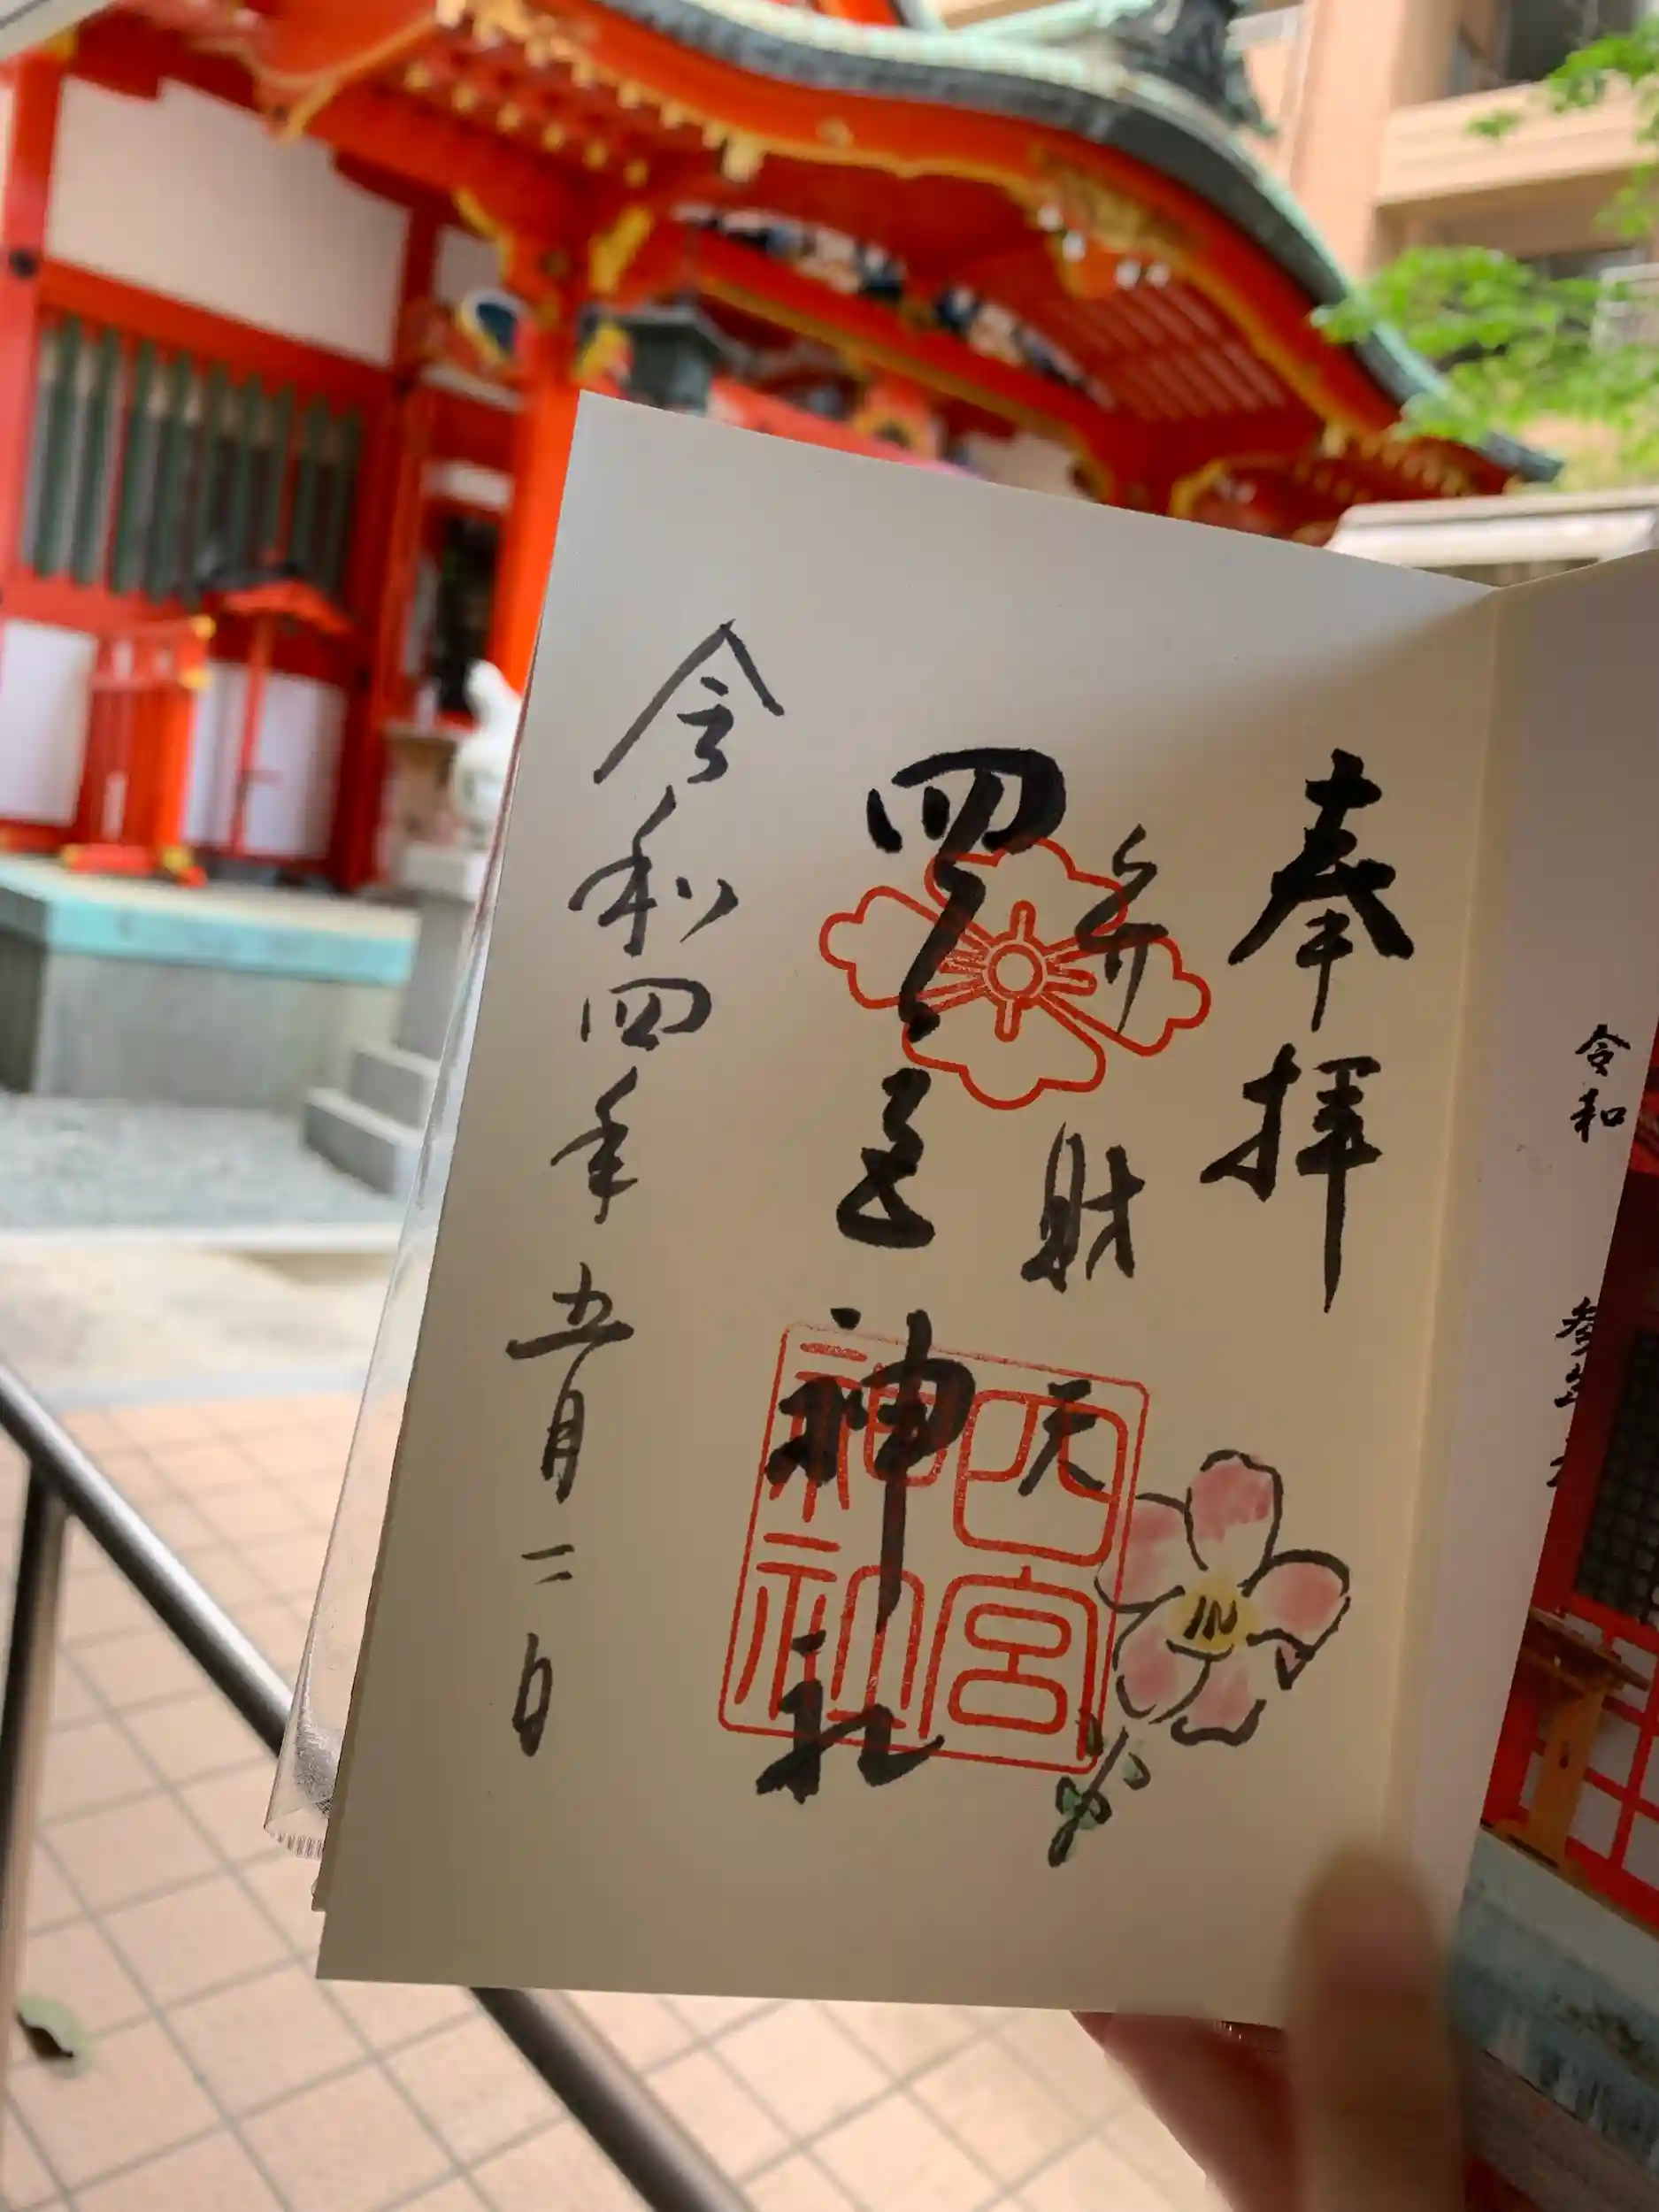 令和
奉拝
弁財天
四宮神社
四宮神社
令和四年五月二日